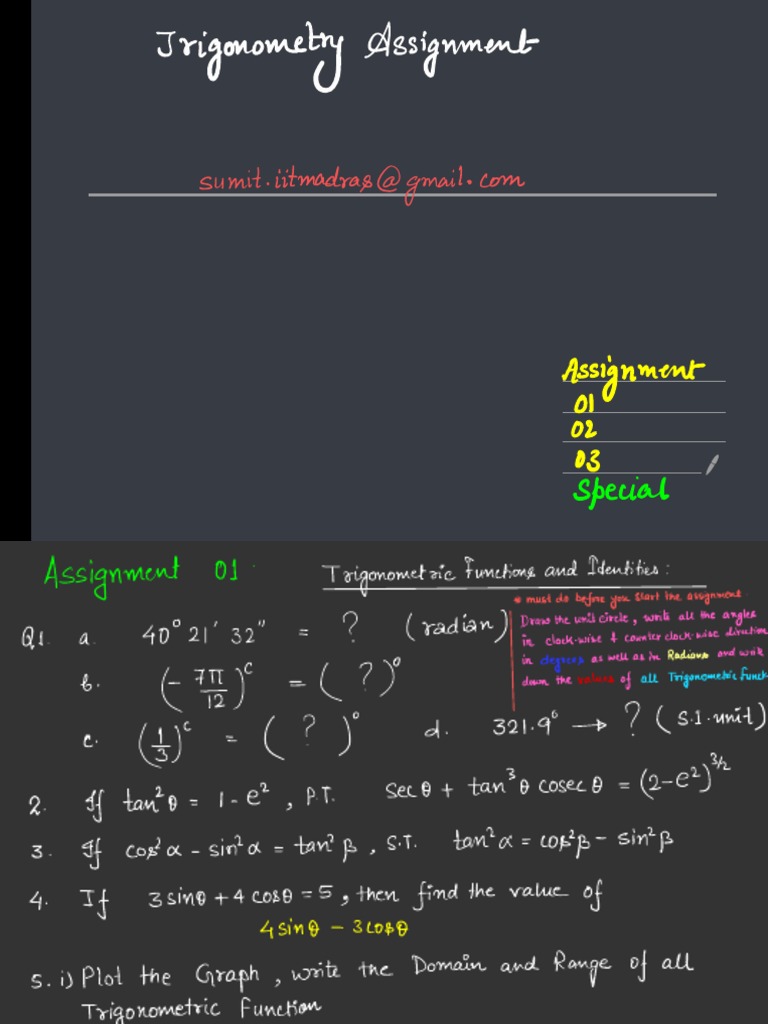 Trigonometry Assignment
sumit.iitmadras@gmail.com
Assignment
01
02
03
Special
Assignment 01. Trigonometric Functions and Identities:
* must do before you start the assignment.
Draw the unit circle, write all the angles
in clock-wise & counter clock-wise direction
in degrees as well as in Radians and write
down the values of all Trigonometric Funct
Q1. a. 40° 21' 32" = ? (radian)
b. (- 7π/12)ᶜ = ( ? )°
c. (1/3)ᶜ = ( ? )° d. 321.9° → ? (S.I. unit)
2. If tan²θ = 1 - e², P.T. secθ + tan³θ cosecθ = (2-e²)^3/2
3. If cos²α - sin²α = tan²β, S.T. tan²α = cos²β - sin²β
4. If 3sinθ + 4cosθ = 5, then find the value of
4sinθ - 3cosθ
5. i) Plot the Graph, write the Domain and Range of all
Trigonometric Function